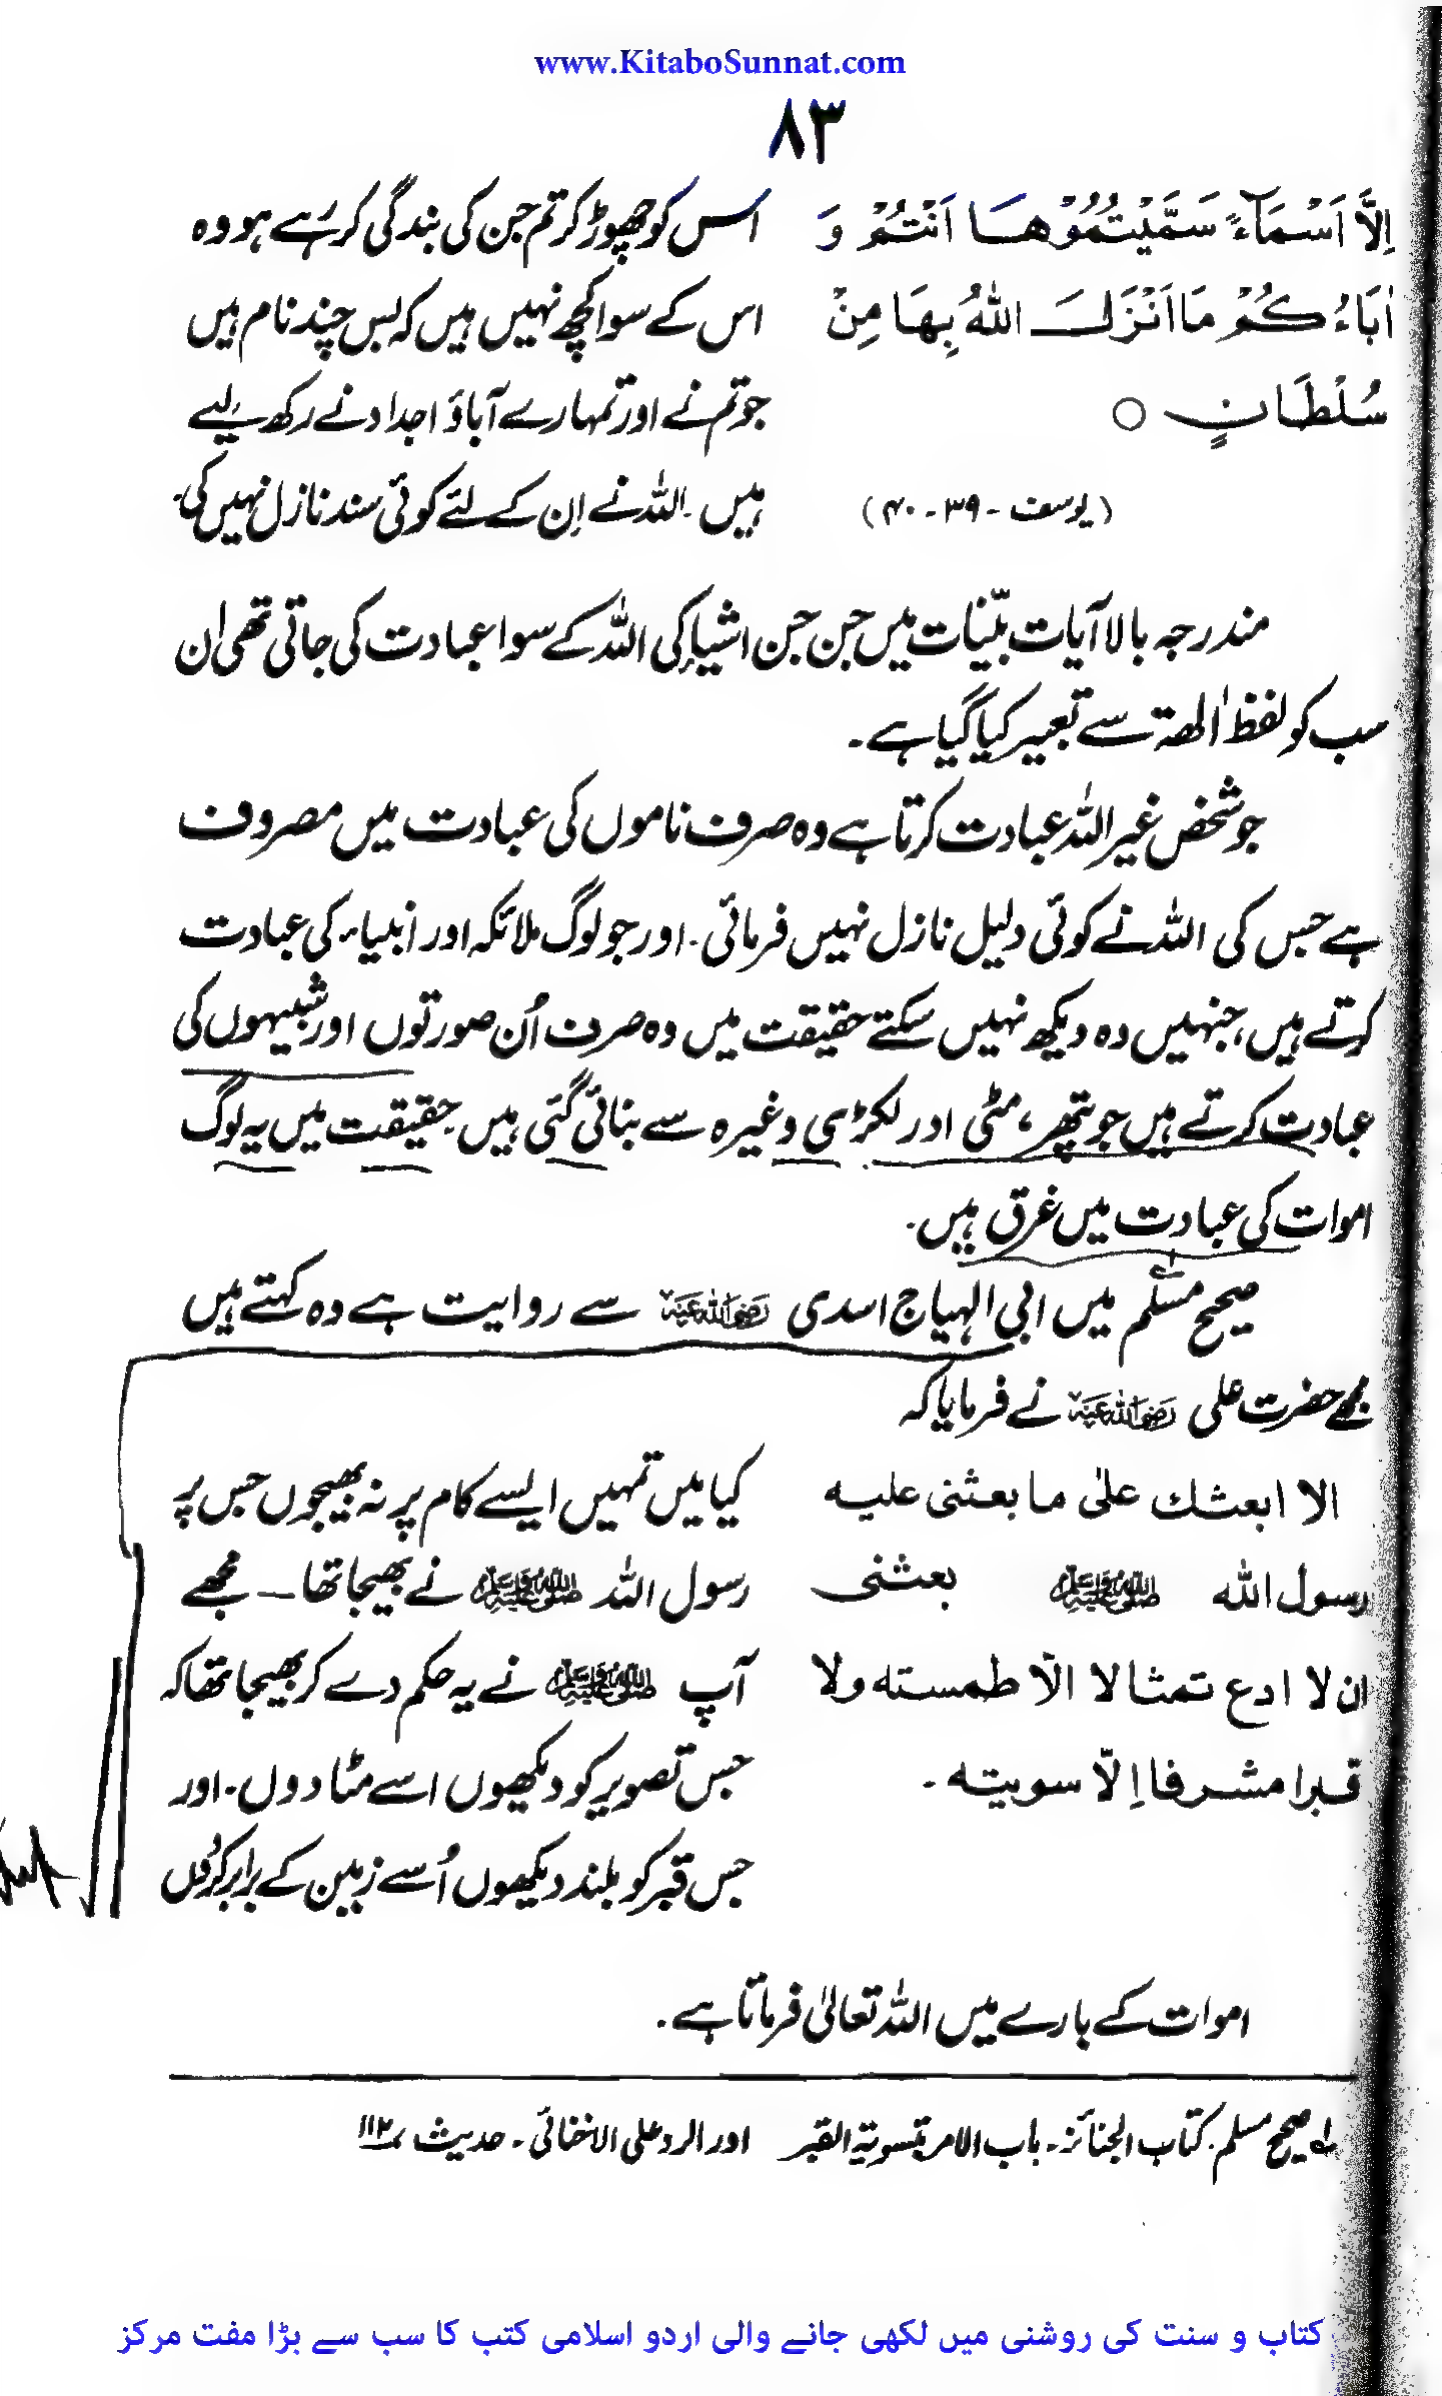 www.KitaboSunnat.com
۸۳
اِلَّا اَسْمَآءً سَمَّيْتُمُوْهَا اَنْتُمْ وَ
اٰبَاءُكُمْ مَا اَنْزَلَ اللهُ بِهَا مِنْ
سُلْطَانٍ ○
(یوسف - ۳۹ - ۴۰)
اس کو چھوڑ کر تم جن کی بندگی کر رہے ہو وہ
اس کے سوا کچھ نہیں ہیں کہ بس چند نام ہیں
جو تم نے اور تمہارے آباؤ اجداد نے رکھ لیے
ہیں۔ اللہ نے اِن کے لئے کوئی سند نازل نہیں کی۔
مندرجہ بالا آیات بیّنات میں جن جن اشیاء کی اللہ کے سوا عبادت کی جاتی تھی ان
سب کو لفظ اٰلھة سے تعبیر کیا گیا ہے۔
جو شخص غیر اللہ عبادت کرتا ہے وہ صرف ناموں کی عبادت میں مصروف
ہے جس کی اللہ نے کوئی دلیل نازل نہیں فرمائی۔ اور جو لوگ ملائکہ اور انبیاء کی عبادت
کرتے ہیں، جنہیں وہ دیکھ نہیں سکتے حقیقت میں وہ صرف اُن صورتوں اور شبیہوں کی
عبادت کرتے ہیں جو پتھر، مٹی اور لکڑی وغیرہ سے بنائی گئی ہیں۔ حقیقت میں یہ لوگ
اموات کی عبادت میں غرق ہیں۔
صحیح مسلم میں ابی الہیاج اسدی رَضِیَ اللہُ عَنْہُ سے روایت ہے وہ کہتے ہیں
مجھے حضرت علی رَضِیَ اللہُ عَنْہُ نے فرمایا کہ
الا ابعثك علىٰ ما بعثنى عليه
رسول الله ﷺ بعثنى
ان لا ادع تمثالا الّا طمسته ولا
قبرا مشرفا اِلّا سويته۔
کیا میں تمہیں ایسے کام پر نہ بھیجوں جس پر
رسول اللہ ﷺ نے بھیجا تھا — مجھے
آپ ﷺ نے یہ حکم دے کر بھیجا تھا کہ
جس تصویر کو دیکھوں اسے مٹا دوں۔ اور
جس قبر کو بلند دیکھوں اُسے زمین کے برابر کردوں
اموات کے بارے میں اللہ تعالیٰ فرماتا ہے۔
لے صحیح مسلم۔ کتاب الجنائز۔ باب الامر بتسویة القبر اور الرد علی الاخنائی۔ حدیث ۱۱۲
کتاب و سنت کی روشنی میں لکھی جانے والی اردو اسلامی کتب کا سب سے بڑا مفت مرکز